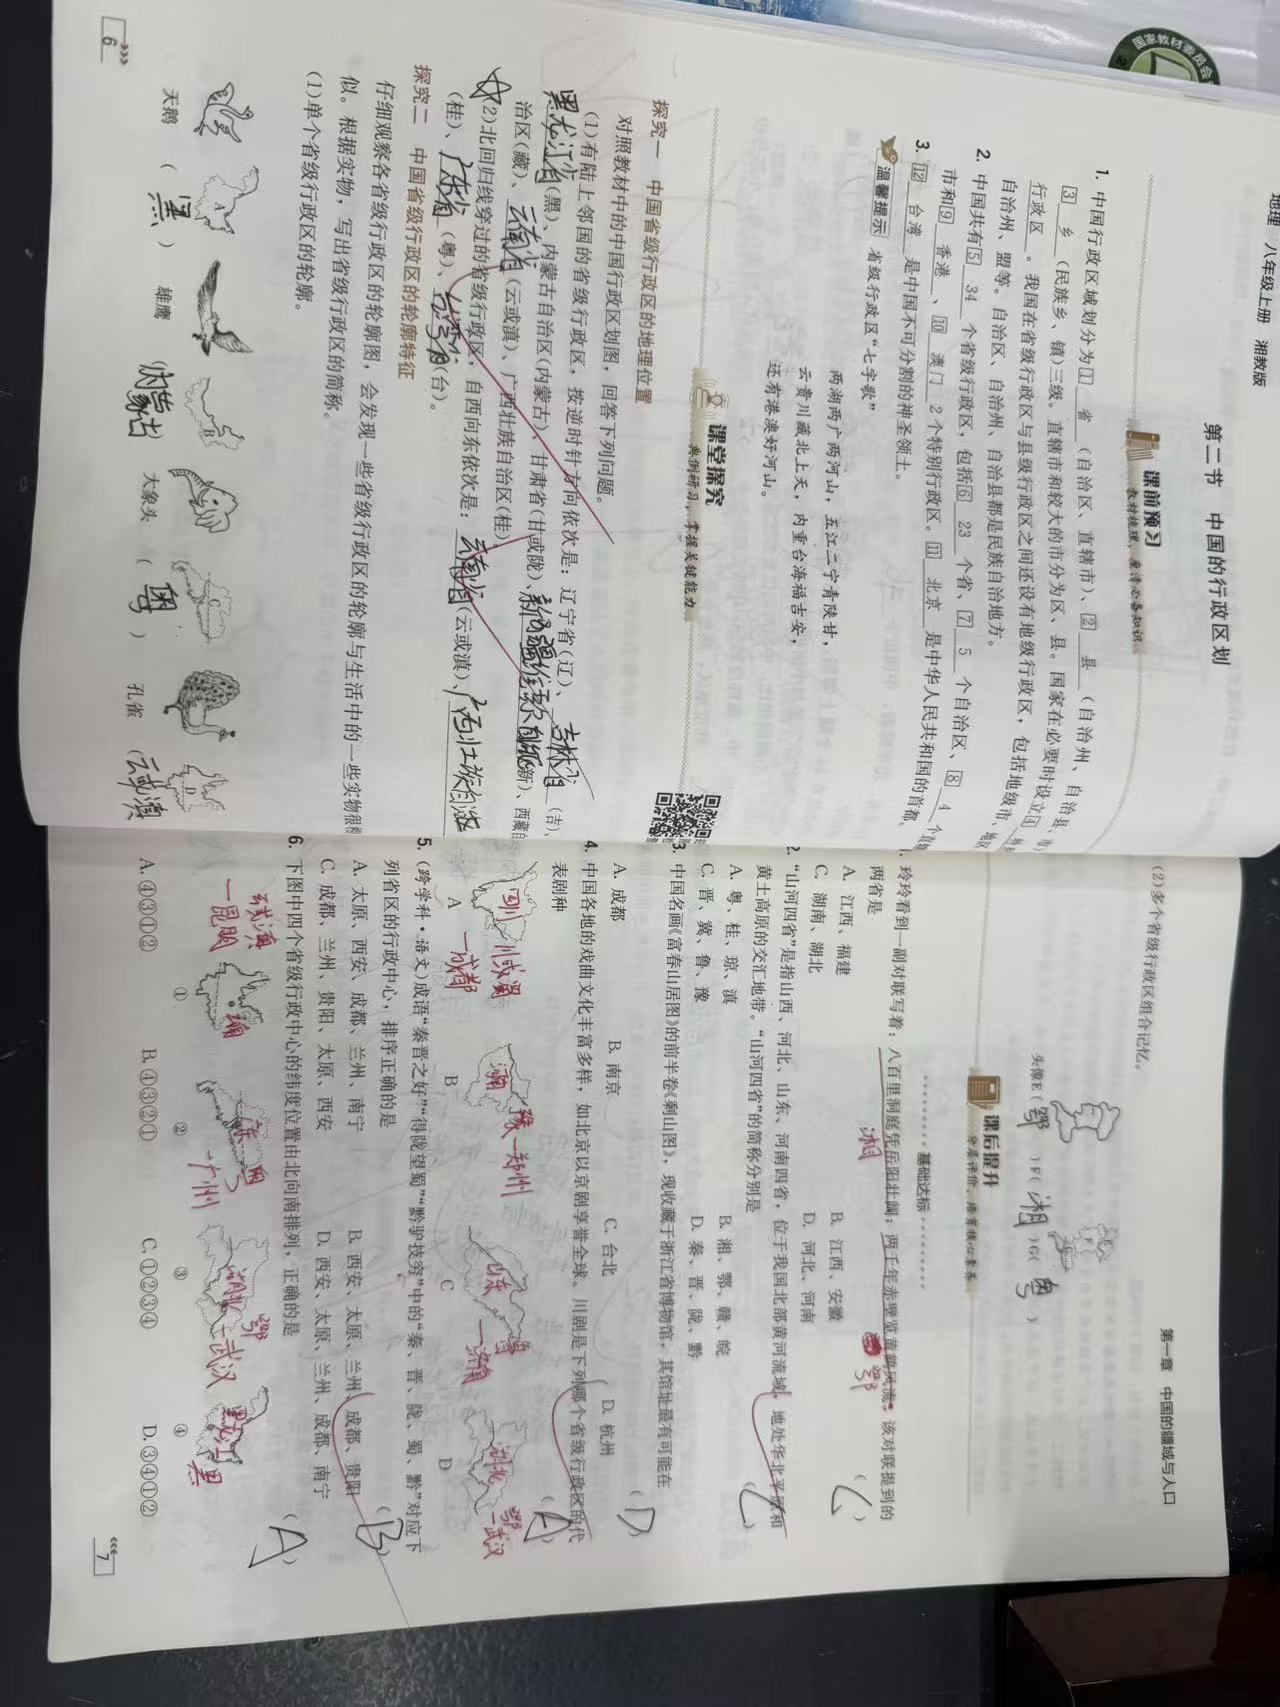 国家教材委员会
地理 八年级上册 湘教版
第二节 中国的行政区划
课前预习
教材梳理,厘清必备知识
1. 中国行政区域划分为1 省 (自治区、直辖市)、2 县 (自治州、自治县、市)
3 乡 (民族乡、镇)三级。直辖市和较大的市分为区、县。国家在必要时设立4 特别
行政区 。我国在省级行政区与县级行政区之间还设有地级行政区,包括地级市、地区
自治州、盟等。自治区、自治州、自治县都是民族自治地方。
2. 中国共有5 34 个省级行政区,包括6 23 个省、7 5 个自治区、8 4 个直辖
市和9 香港 、10 澳门 2个特别行政区。11 北京 是中华人民共和国的首都,
3. 12 台湾 是中国不可分割的神圣领土。
温馨提示 省级行政区“七字歌”
两湖两广两河山,五江二宁青陕甘,
云贵川藏北上天,内重台海福吉安,
还有港澳好河山。
课堂探究
典例研习,掌握关键能力
探究一 中国省级行政区的地理位置
对照教材中的中国行政区划图,回答下列问题。
(1)有陆上邻国的省级行政区,按逆时针方向依次是:辽宁省(辽)、吉林省(吉)、
黑龙江省(黑)、内蒙古自治区(内蒙古)、甘肃省(甘或陇)、新疆维吾尔自治区(新)、西藏自
治区(藏)、云南省(云或滇)、广西壮族自治区(桂)
(2)北回归线穿过的省级行政区,自西向东依次是:云南省(云或滇)、广西壮族自治区
(桂)、广东省(粤)、台湾省(台)。
探究二 中国省级行政区的轮廓特征
仔细观察各省级行政区的轮廓图,会发现一些省级行政区的轮廓与生活中的一些实物很相
似。根据实物,写出省级行政区的简称。
(1)单个省级行政区的轮廓。
A
B
C
D
天鹅 (黑) 雄鹰 (内蒙古) 大象头 (粤) 孔雀 (云或滇)
6
第一章 中国的疆域与人口
(2)多个省级行政区组合记忆。
头像E(鄂)F(湘)G(粤)
课后提升
分层评价,培育核心素养
基础达标
1. 玲玲看到一副对联写着:八百里洞庭凭岳阳壮阔;两千年赤壁览黄鹤风流。该对联提到的
湘 鄂
两省是 (C)
A. 江西、福建 B. 江西、安徽
C. 湖南、湖北 D. 河北、河南
2. “山河四省”是指山西、河北、山东、河南四省,位于我国北部黄河流域,地处华北平原和
黄土高原的交汇地带。“山河四省”的简称分别是 (C)
A. 粤、桂、琼、滇 B. 湘、鄂、赣、皖
C. 晋、冀、鲁、豫 D. 秦、晋、陇、黔
3. 中国名画《富春山居图》的前半卷《剩山图》,现收藏于浙江省博物馆,其馆址最有可能在
(D)
A. 成都 B. 南京 C. 台北 D. 杭州
4. 中国各地的戏曲文化丰富多样,如北京以京剧享誉全球。川剧是下列哪个省级行政区的代
表剧种 (A)
四川 川或蜀 一成都
豫一郑州
山东 一济南
湖北 鄂一武汉
A B C D
5. (跨学科·语文)成语“秦晋之好”“得陇望蜀”“黔驴技穷”中的“秦、晋、陇、蜀、黔”对应下
列省区的行政中心,排序正确的是 (B)
A. 太原、西安、成都、兰州、南宁 B. 西安、太原、兰州、成都、贵阳
C. 成都、兰州、贵阳、太原、西安 D. 西安、太原、兰州、成都、南宁
6. 下图中四个省级行政中心的纬度位置由北向南排列,正确的是 (A)
云或滇 一昆明
一广州
湖北 鄂 一武汉
黑龙江 黑
① ② ③ ④
A. ④③①② B. ④③②① C. ①②③④ D. ③④①②
7